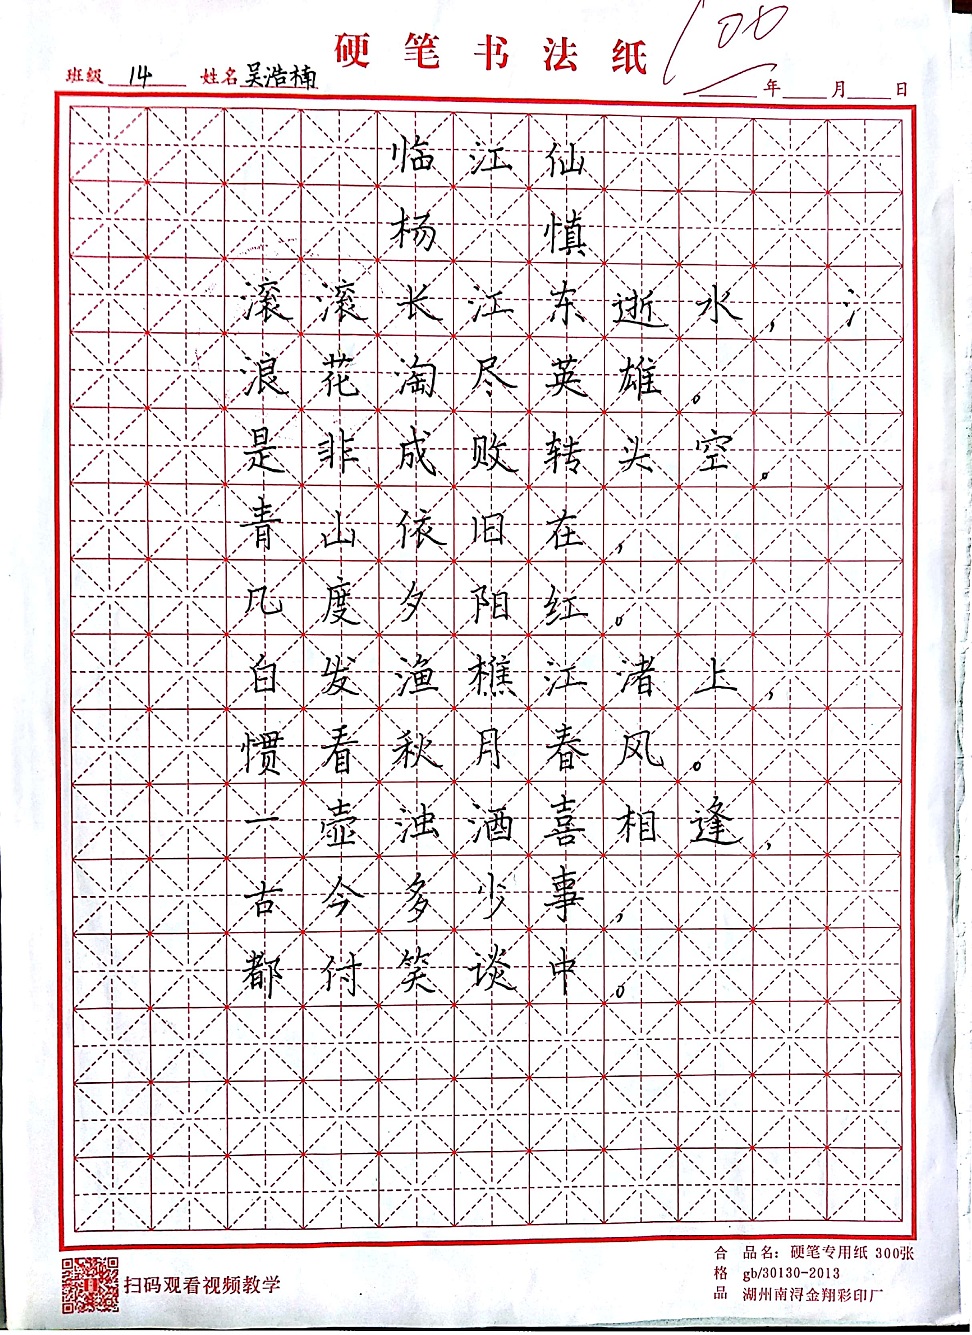 硬笔书法纸
100
班级 14 姓名 吴浩楠 年 月 日
临江仙
杨 慎
滚滚长江东逝水， 氵
浪花淘尽英雄。
是非成败转头空。
青山依旧在，
几度夕阳红。
白发渔樵江渚上，
惯看秋月春风。
一壶浊酒喜相逢，
古今多少事，
都付笑谈中。
扫码观看视频教学
合格品
品名：硬笔专用纸 300张
gb/30130-2013
湖州南浔金翔彩印厂